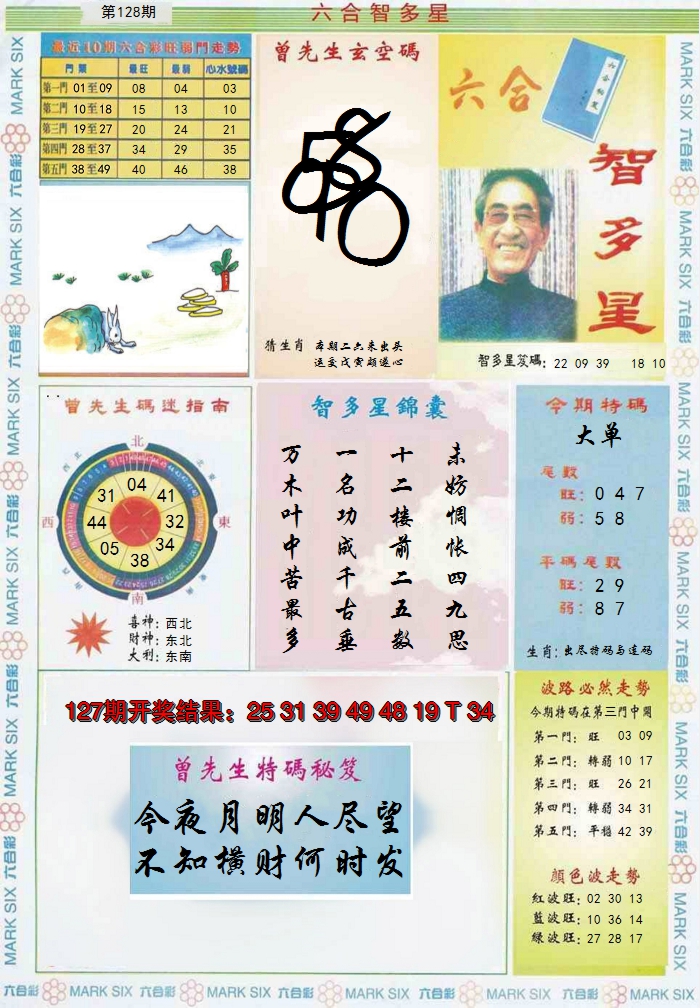 第128期
六合智多星
最近10期六合彩旺弱門走勢
門類 最旺 最弱 心水號碼
第一門 01至09 08 04 03
第二門 10至18 15 13 10
第三門 19至27 20 24 21
第四門 28至37 34 29 35
第五門 38至49 40 46 38
曾先生玄空碼
猜生肖
本期二六来出头
运变戊寅颇遂心
六合
智多星
智多星笈碼: 22 09 39 18 10
曾先生碼迷指南
北
西
東
南
04
41
32
34
38
05
44
31
喜神: 西北
財神: 东北
大利: 东南
智多星錦囊
未妨惆怅四九思
十二楼前二五数
一名功成千古垂
万木叶中苦最多
今期特碼
大单
尾數
旺: 0 4 7
弱: 5 8
平碼尾數
旺: 2 9
弱: 8 7
生肖: 出尽特码与连码
127期开奖结果: 25 31 39 49 48 19 T 34
曾先生特碼秘笈
今夜月明人尽望
不知横财何时发
波路必然走勢
今期特碼在第三門中開
第一門: 旺 03 09
第二門: 轉弱 10 17
第三門: 旺 26 21
第四門: 轉弱 34 31
第五門: 平穩 42 39
顏色波走勢
紅波旺: 02 30 13
藍波旺: 10 36 14
綠波旺: 27 28 17
六合彩 MARK SIX 六合彩 MARK SIX 六合彩 MARK SIX 六合彩 MARK SIX 六合彩 MARK SIX